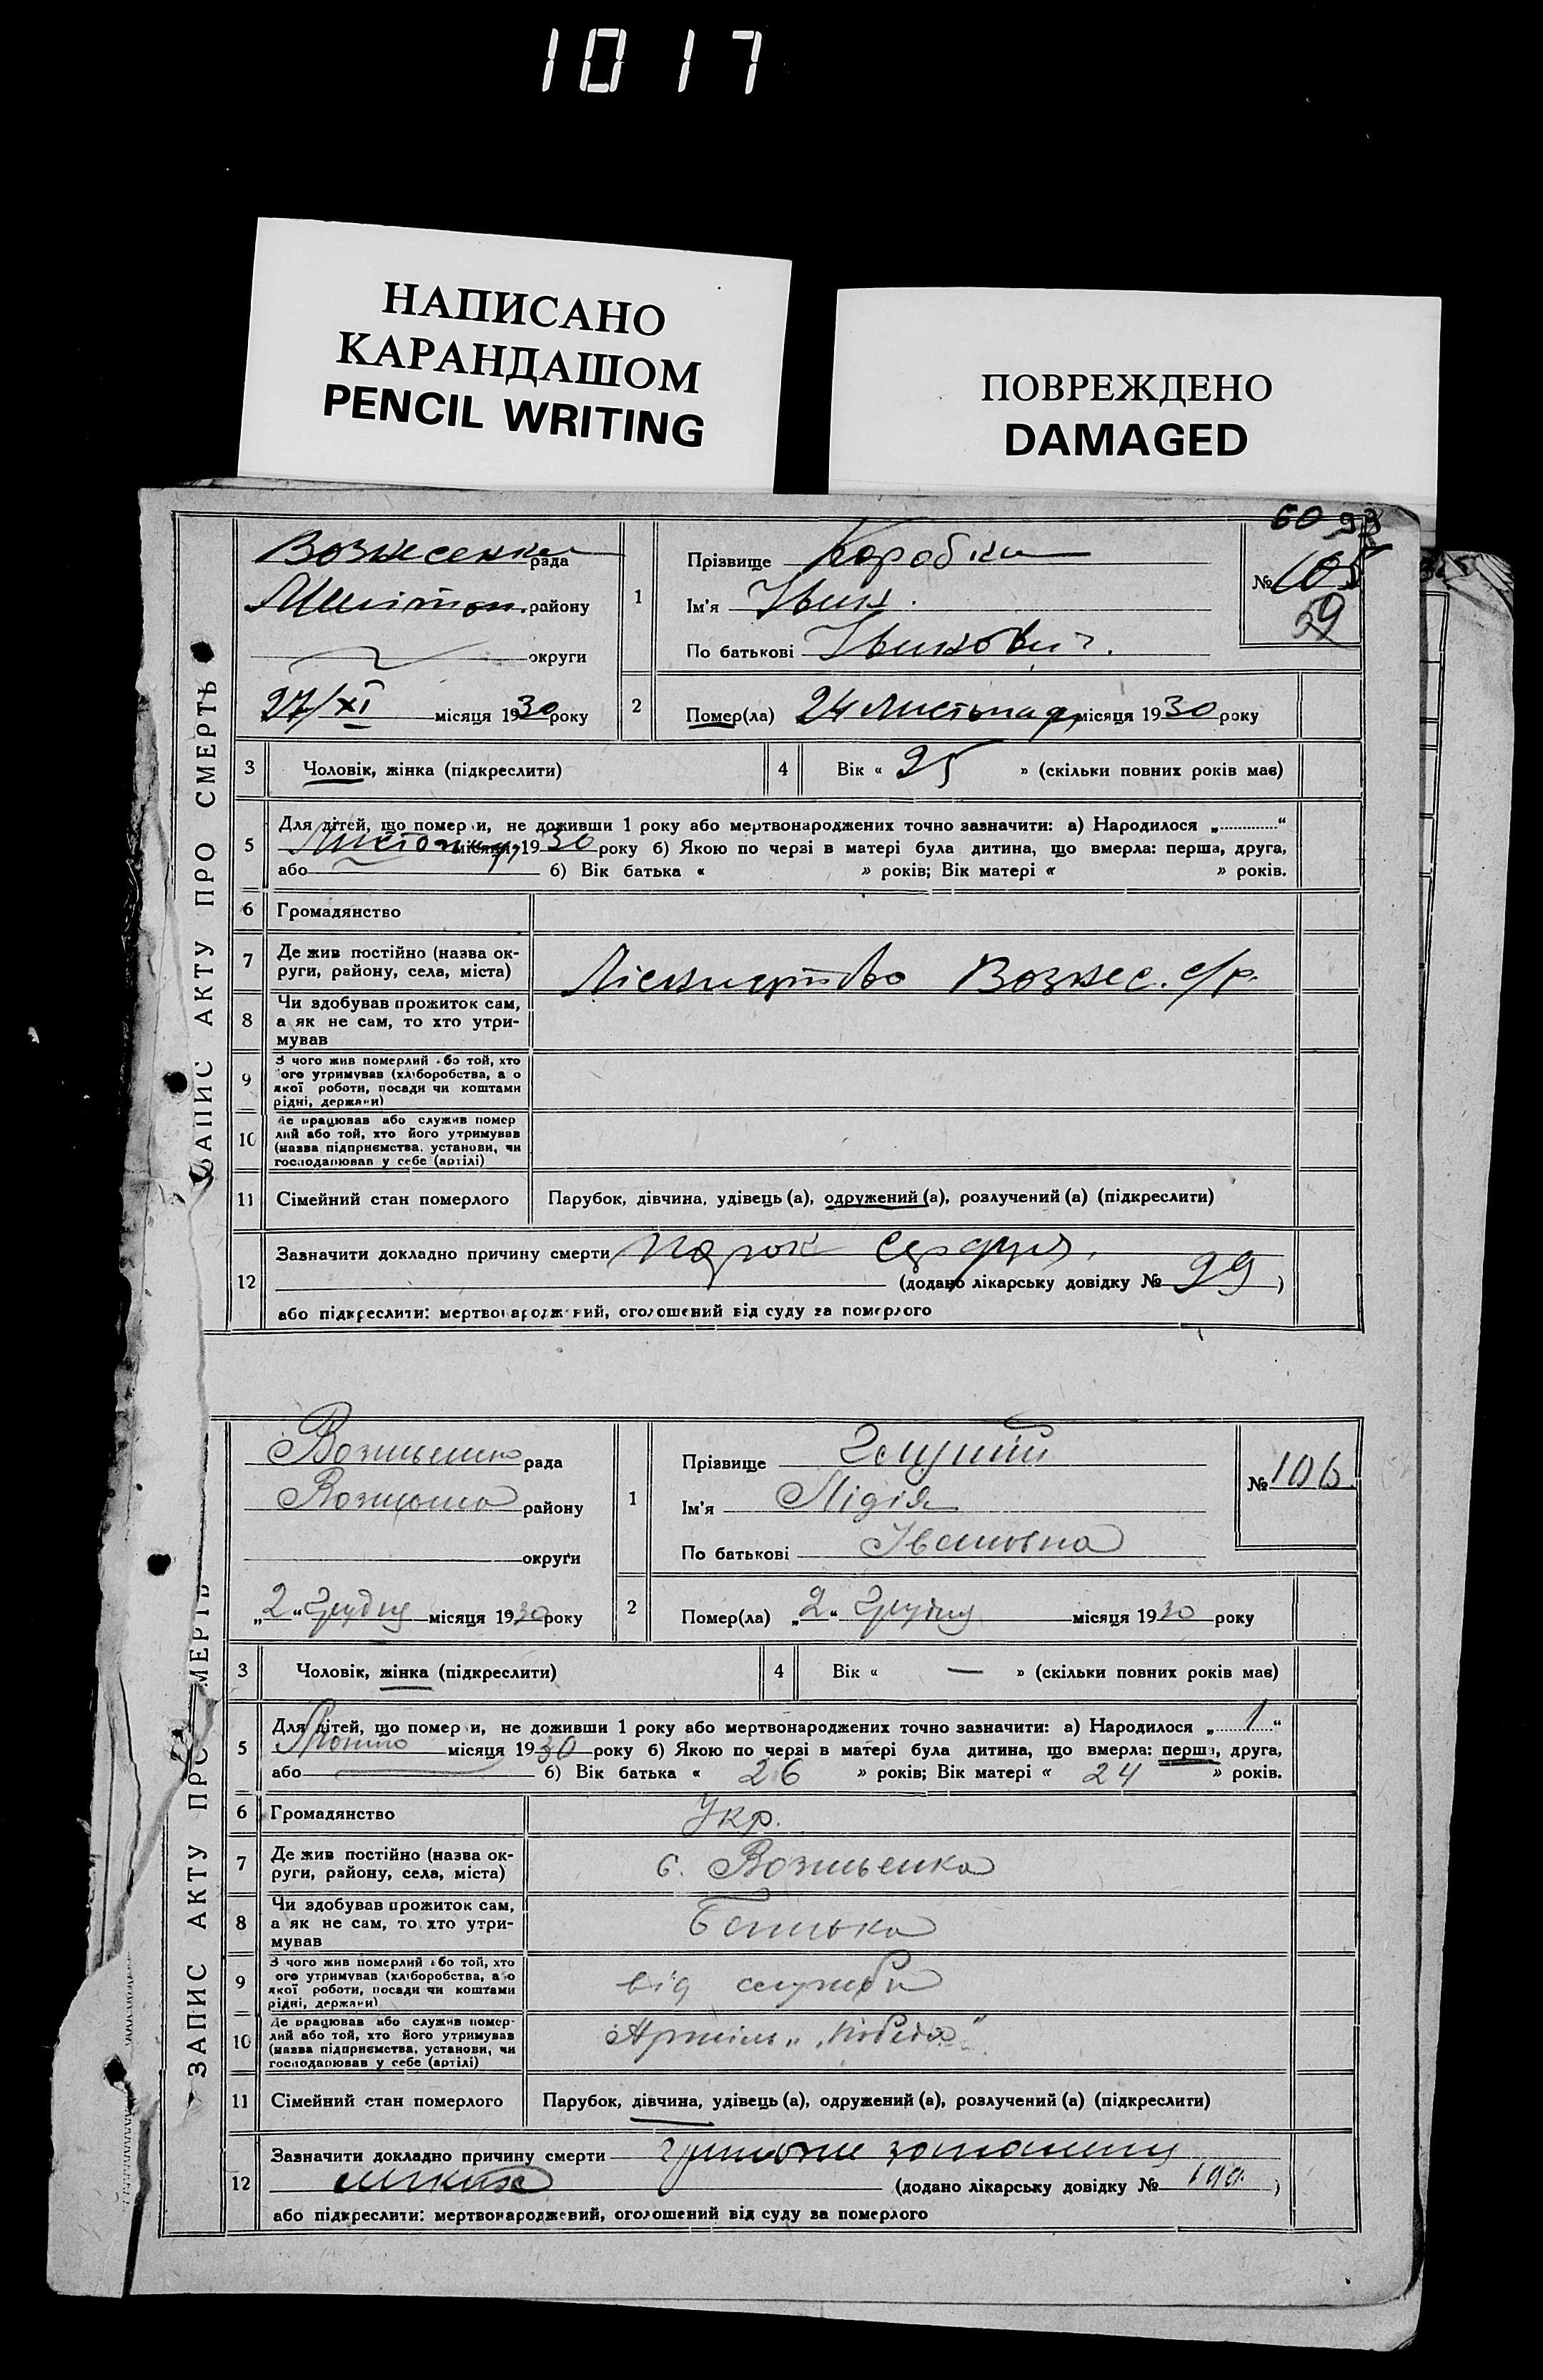 1017
НАПИСАНО
КАРАНДАШОМ
PENCIL WRITING
ПОВРЕЖДЕНО
DAMAGED
60 93
ЗАПИС АКТУ ПРО СМЕРТЬ
Вознесенка рада
району
округи
27/XI місяця 1930 року
1
Прізвище Коробка
Ім'я Іван.
По батькові Іванович.
№ 105
59
2
Помер(ла) 24 Листопад місяця 1930 року
3 Чоловік, жінка (підкреслити)
4 Вік « 25 » (скільки повних років має)
5
Для дітей, що померли, не доживши 1 року або мертвонароджених точно зазначити: а) Народилося „ “
Листопад місяця 1930 року б) Якою по черзі в матері була дитина, що вмерла: перша, друга,
або б) Вік батька « » років; Вік матері « » років.
6 Громадянство
7 Де жив постійно (назва ок-
руги, району, села, міста)
Лісництво Вознес. с/р.
8 Чи здобував прожиток сам,
а як не сам, то хто утри-
мував
9 З чого жив померлий або той, хто
ого утримував (хліборобства, а о
якої роботи, посади чи коштами
рідні, держави)
10 Де працював або служив помер
лий або той, хто його утримував
(назва підприємства, установи, чи
господарював у себе (артілі)
11 Сімейний стан померлого Парубок, дівчина, удівець (а), одружений (а), розлучений (а) (підкреслити)
12
Зазначити докладно причину смерти Порок Сердця.
(додано лікарську довідку № 99 )
або підкреслити: мертвонароджений, оголошений від суду за померлого
ЗАПИС АКТУ ПРО СМЕРТЬ
рада
району
округи
„2“ Грудня місяця 1930 року
1
Прізвище
Ім'я Лідія
По батькові Івановна
№ 106.
2
Помер(ла) „2“ Грудня місяця 1930 року
3 Чоловік, жінка (підкреслити)
4 Вік « — » (скільки повних років має)
5
Для дітей, що померли, не доживши 1 року або мертвонароджених точно зазначити: а) Народилося „ 1 “
місяця 1930 року б) Якою по черзі в матері була дитина, що вмерла: перша, друга,
або б) Вік батька « 26 » років; Вік матері « 24 » років.
6 Громадянство Укр.
7 Де жив постійно (назва ок-
руги, району, села, міста)
с. Вознесенка
8 Чи здобував прожиток сам,
а як не сам, то хто утри-
мував
Батька
9 З чого жив померлий або той, хто
ого утримував (хліборобства, а о
якої роботи, посади чи коштами
рідні, держави)
від служби
10 Де працював або служив помер-
лий або той, хто його утримував
(назва підприємства, установи, чи
господарював у себе (артілі)
Артіль „Победа“
11 Сімейний стан померлого Парубок, дівчина, удівець (а), одружений (а), розлучений (а) (підкреслити)
12
Зазначити докладно причину смерти
(додано лікарську довідку № 100 )
або підкреслити: мертвонароджений, оголошений від суду за померлого